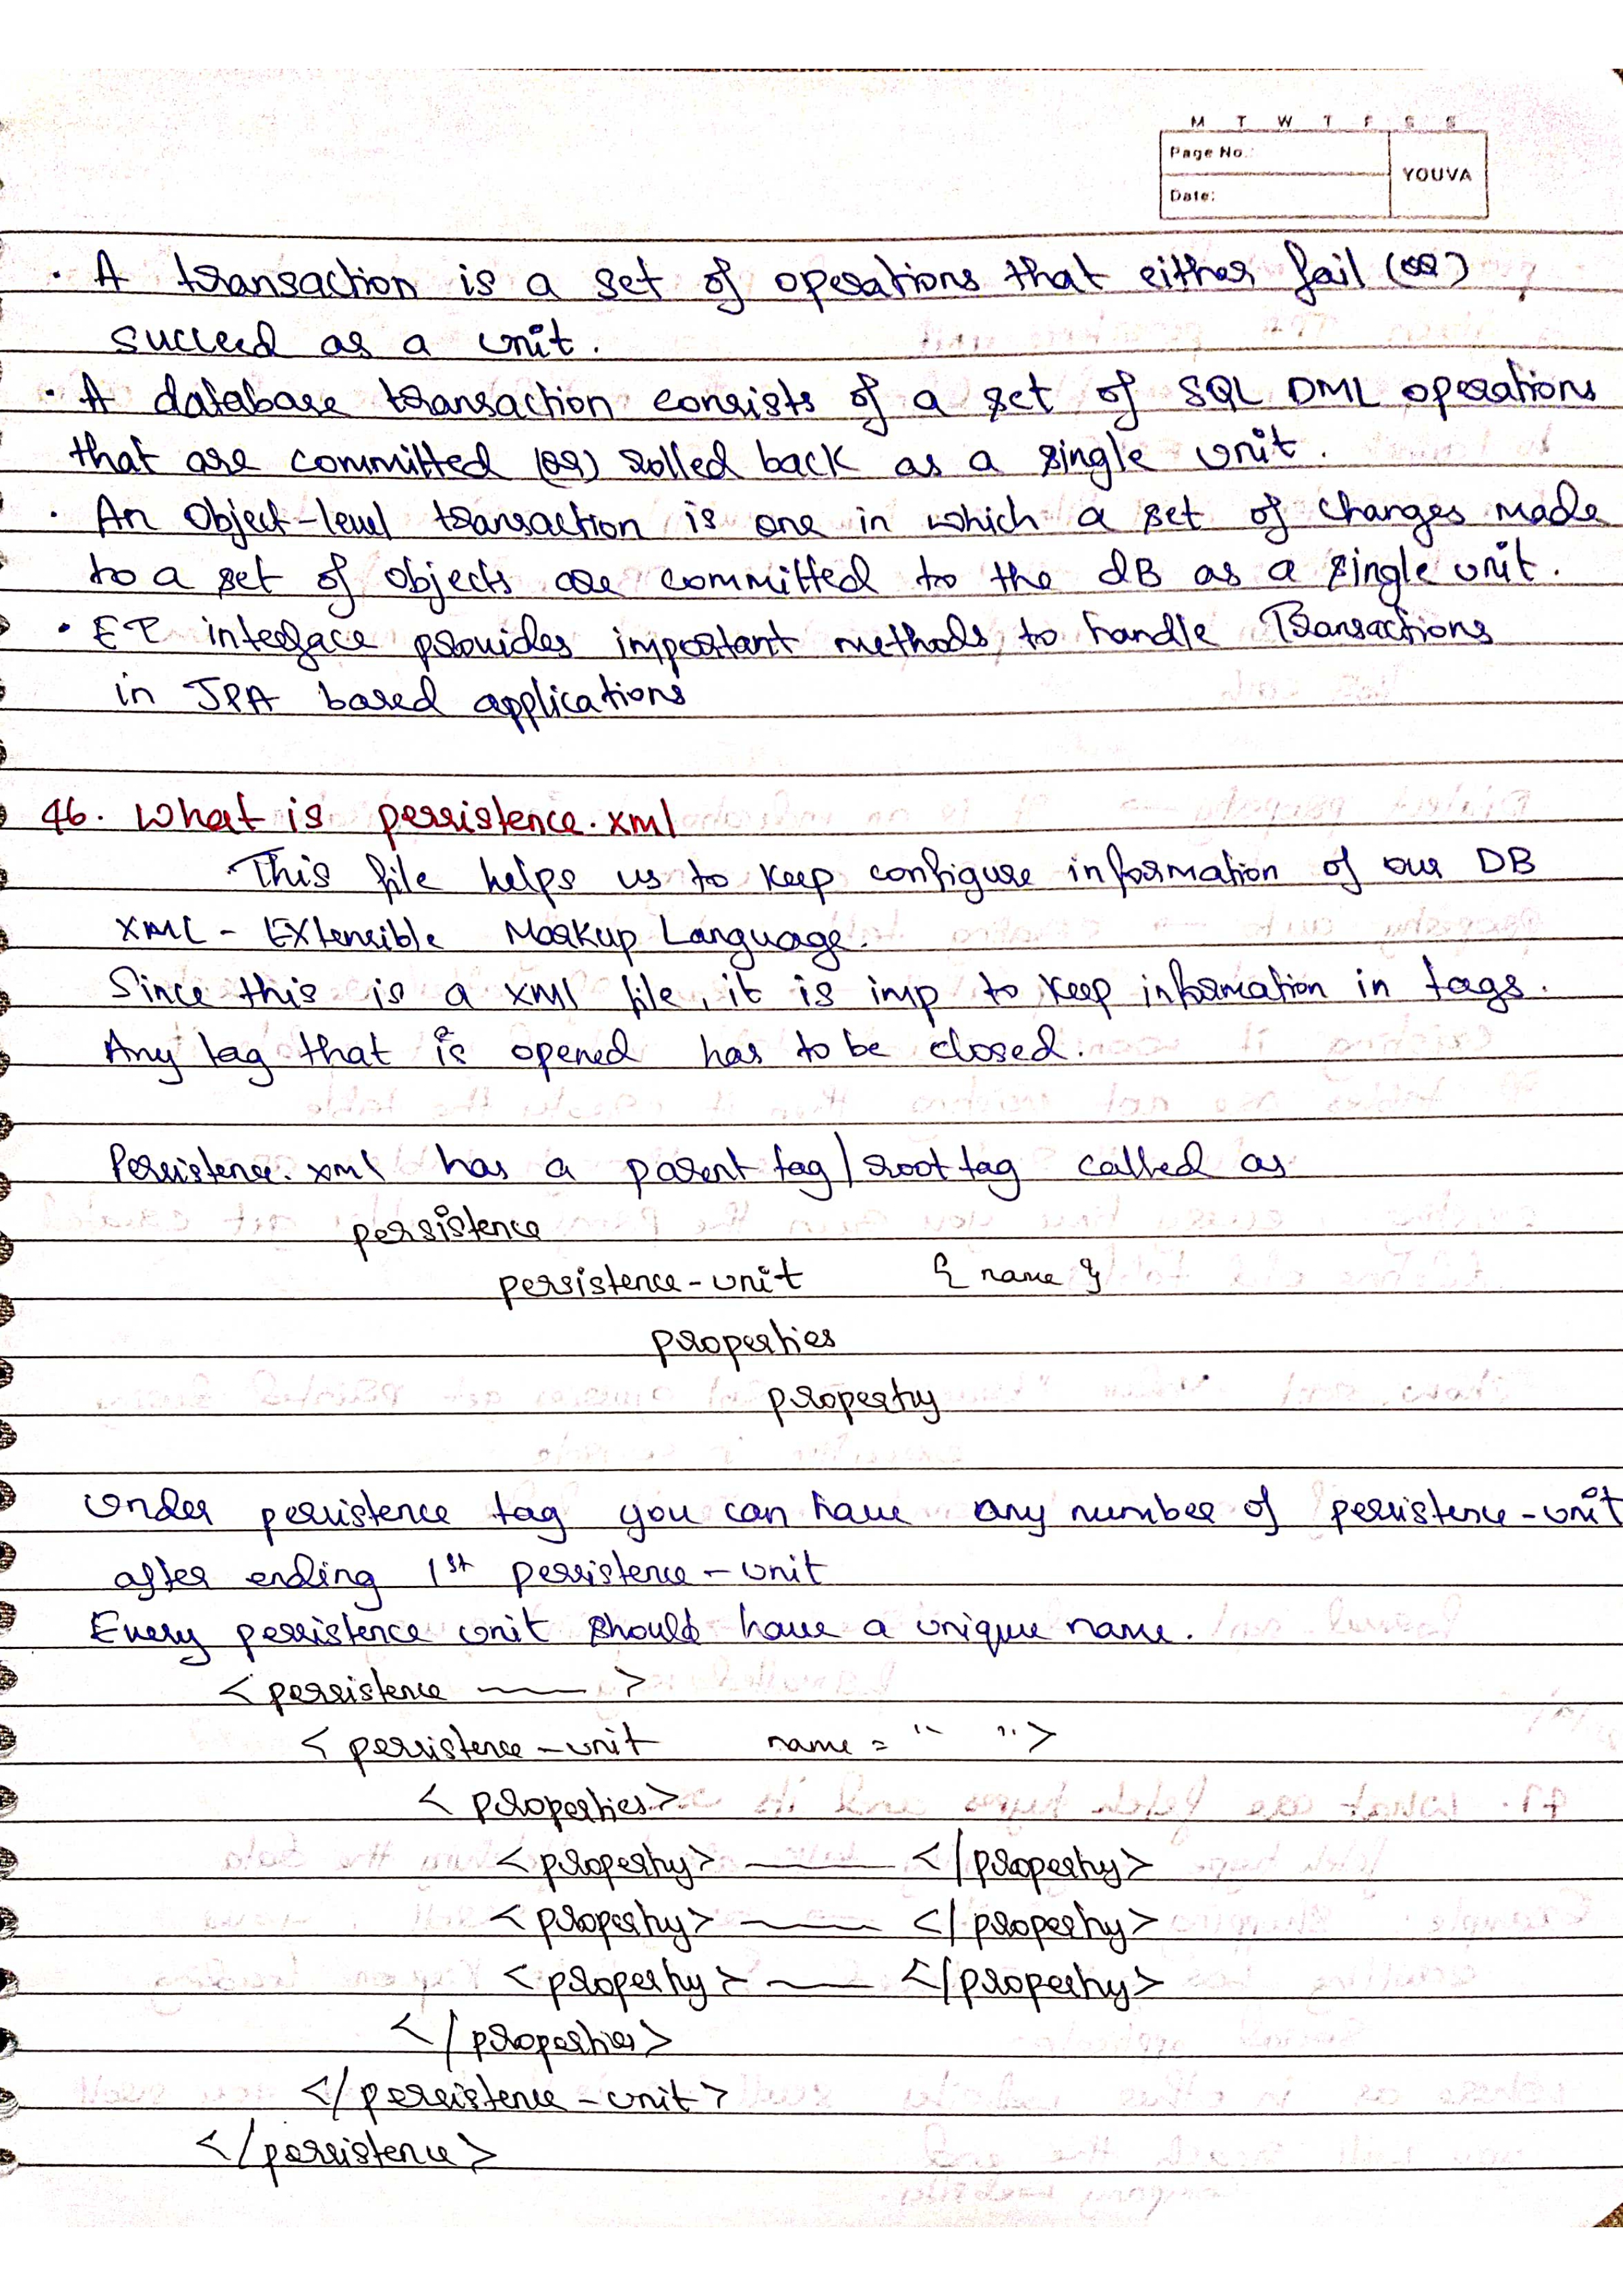 M T W T F S S
Page No.:
YOUVA
Date:
• A transaction is a set of operations that either fail (OR)
succeed as a unit.
• A database transaction consists of a set of SQL DML operations
that are committed (or) rolled back as a single unit.
• An Object-level transaction is one in which a set of changes made
to a set of objects are committed to the dB as a single unit.
• ET interface provides important methods to handle Transactions
in JPA based applications
46. What is persistence.xml
This file helps us to keep configure information of our DB
XML - EXtensible Markup Language.
Since this is a xml file, it is imp to keep information in tags.
Any tag that is opened has to be closed.
Persistence.xml has a parent tag/root tag called as
persistence
persistence-unit { name }
properties
property
Under persistence tag you can have any number of persistence-unit
after ending 1st persistence-unit
Every persistence unit should have a unique name.
<persistence ——— >
<persistence-unit name = " ">
<properties>
<property> ——— </property>
<property> ——— </property>
<property> ——— </property>
</properties>
</persistence-unit>
</persistence>